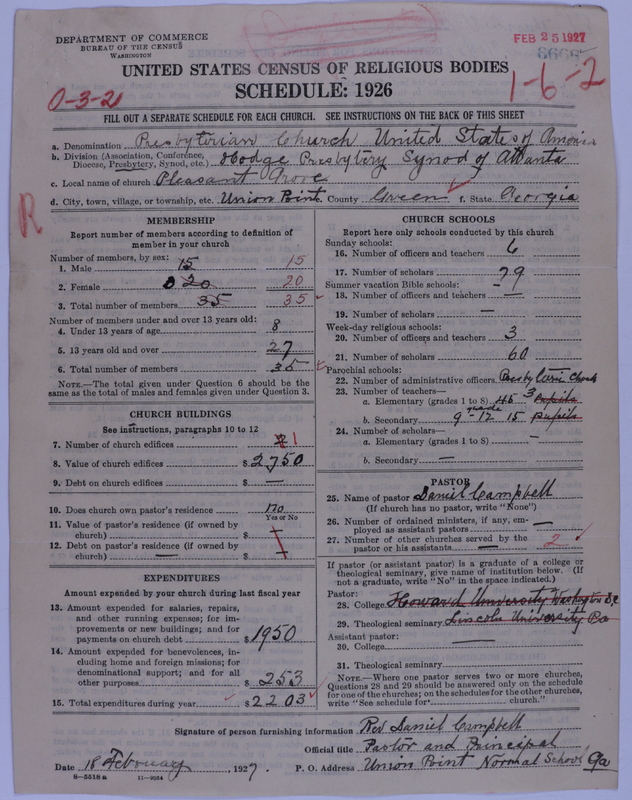 DEPARTMENT OF COMMERCE
BUREAU OF THE CENSUS
WASHINGTON
FEB 25 1927
UNITED STATES CENSUS OF RELIGIOUS BODIES
SCHEDULE: 1926
0-3-21
1-6-2
FILL OUT A SEPARATE SCHEDULE FOR EACH CHURCH. SEE INSTRUCTIONS ON THE BACK OF THIS SHEET
a. Denomination Presbyterian Church United States of America
b. Division (Association, Conference, Diocese, Presbytery, Synod, etc.) Hodge Presbytery Synod of Atlanta
c. Local name of church Pleasant Grove
d. City, town, village, or township, etc. Union Point County Green f. State Georgia
R
MEMBERSHIP
Report number of members according to definition of
member in your church
Number of members, by sex:
1. Male 15 15
2. Female 20 20
3. Total number of members 35 35
Number of members under and over 13 years old:
4. Under 13 years of age 8
5. 13 years old and over 27
6. Total number of members 35
NOTE.—The total given under Question 6 should be
same as the total of males and females given under Question 3.
CHURCH BUILDINGS
See instructions, paragraphs 10 to 12
7. Number of church edifices 1
8. Value of church edifices $ 2750
9. Debt on church edifices $ —
10. Does church own pastor's residence no
Yes or No
11. Value of pastor's residence (if owned by
church) $ —
12. Debt on pastor's residence (if owned by
church) — $ —
EXPENDITURES
Amount expended by your church during last fiscal year
13. Amount expended for salaries, repairs,
and other running expenses; for im-
provements or new buildings; and for
payments on church debt $ 1950
14. Amount expended for benevolences, in-
cluding home and foreign missions; for
denominational support; and for all
other purposes $ 253
15. Total expenditures during year $ 2203
CHURCH SCHOOLS
Report here only schools conducted by this church
Sunday schools:
16. Number of officers and teachers 6
17. Number of scholars 79
Summer vacation Bible schools:
18. Number of officers and teachers —
19. Number of scholars —
Week-day religious schools:
20. Number of officers and teachers 3
21. Number of scholars 60
Parochial schools:
22. Number of administrative officers
23. Number of teachers—
a. Elementary (grades 1 to 8) 45 3 Pupils
b. Secondary 9 - 12 grade 15 pupils
24. Number of scholars—
a. Elementary (grades 1 to 8) —
b. Secondary —
PASTOR
25. Name of pastor Daniel Campbell
(If church has no pastor, write "None")
26. Number of ordained ministers, if any, em-
ployed as assistant pastors —
27. Number of other churches served by the
pastor or his assistants — 2
If pastor (or assistant pastor) is a graduate of a college or
theological seminary, give name of institution below. (If
not a graduate, write "No" in the space indicated.)
Pastor:
28. College Howard University Washington D.C
29. Theological seminary Lincoln University Pa
Assistant pastor:
30. College —
31. Theological seminary
NOTE.—Where one pastor serves two or more churches,
Questions 28 and 29 should be answered only on the schedule
for one of the churches; on the schedules for the other churches,
write "See schedule for church."
Signature of person furnishing information Rev Daniel Campbell
Official title Pastor and Principal
Date 18 February, 1927. P. O. Address Union Point Normal School Ga
8—5518a 11—9924